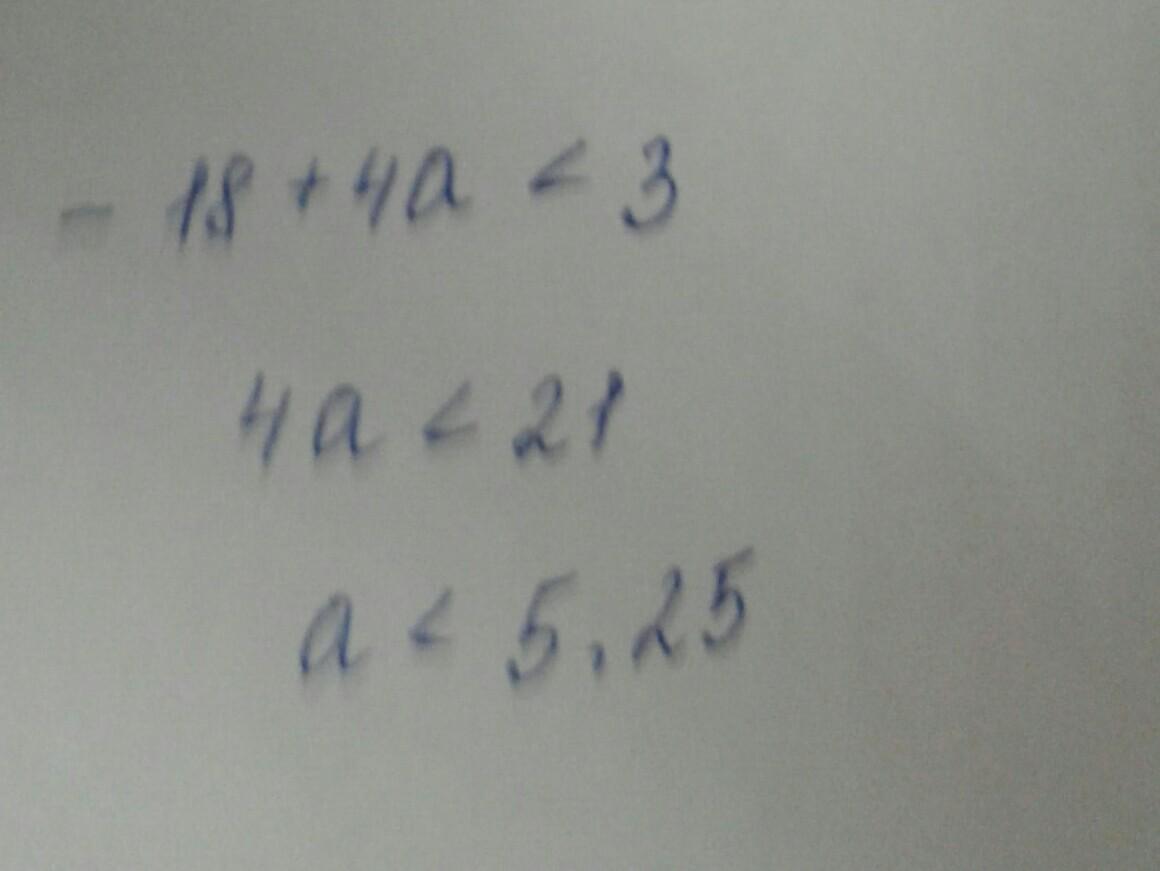 - 18 + 4a < 3
4a < 21
a < 5,25